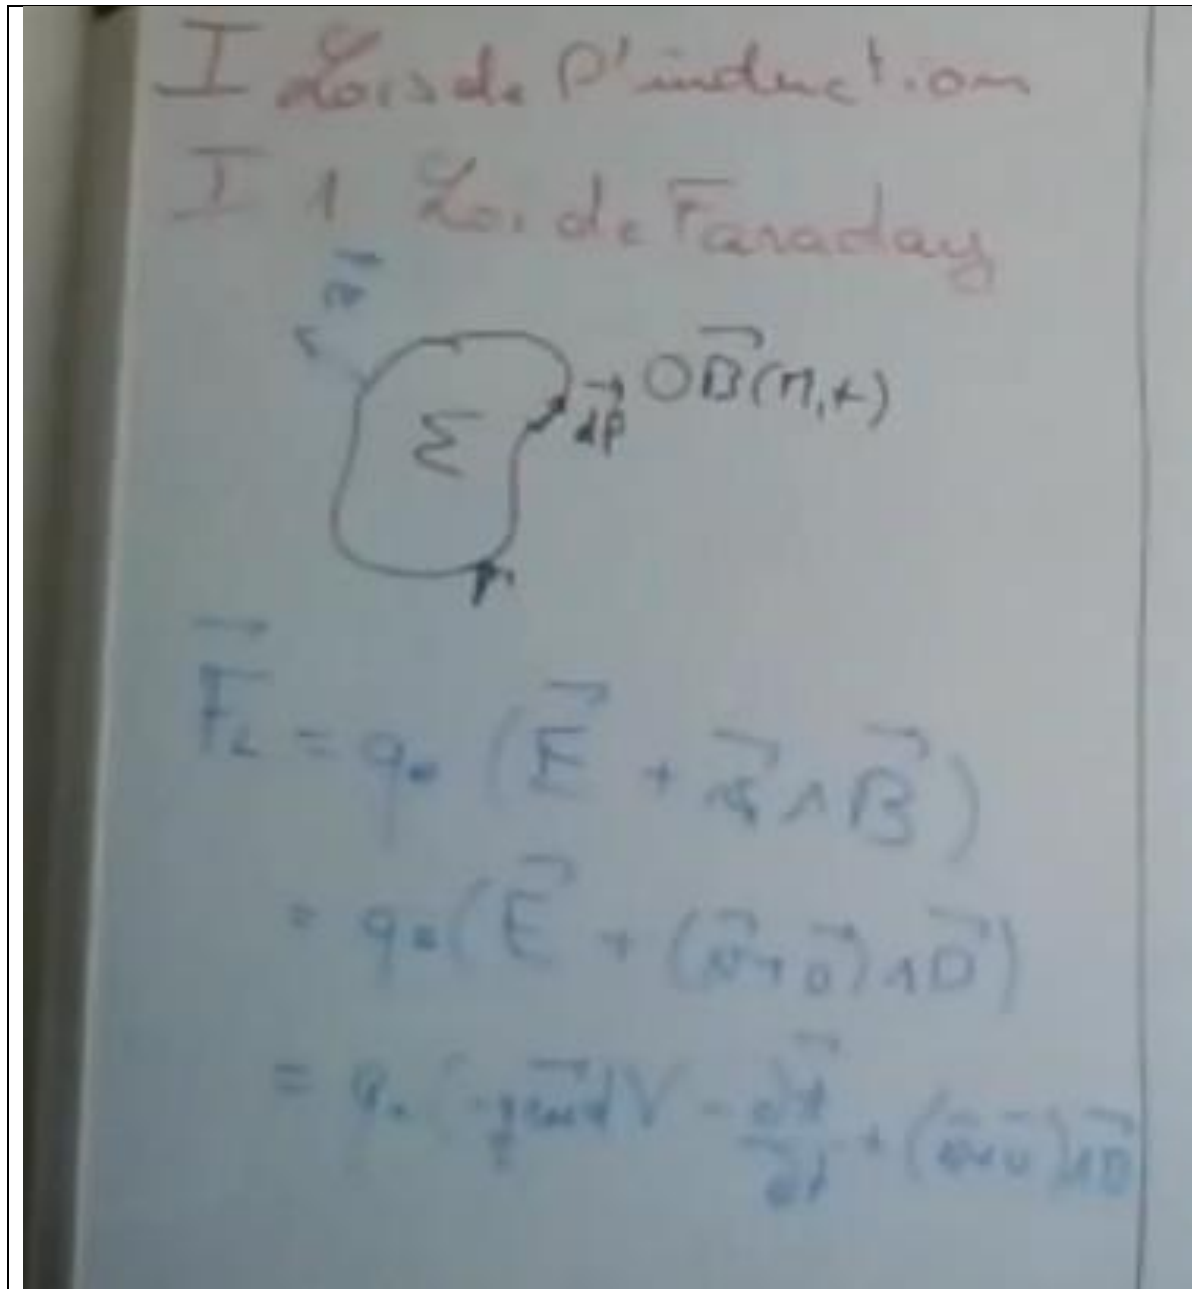 I Lois de l'induction
I 1 Loi de Faraday
Σ
dl B(M,t)
F_L = q. (E + ∧ B)
= q. (E + (v+u) ∧ B)
= q. (-grad V - ∂A/∂t + (v+u) ∧ B